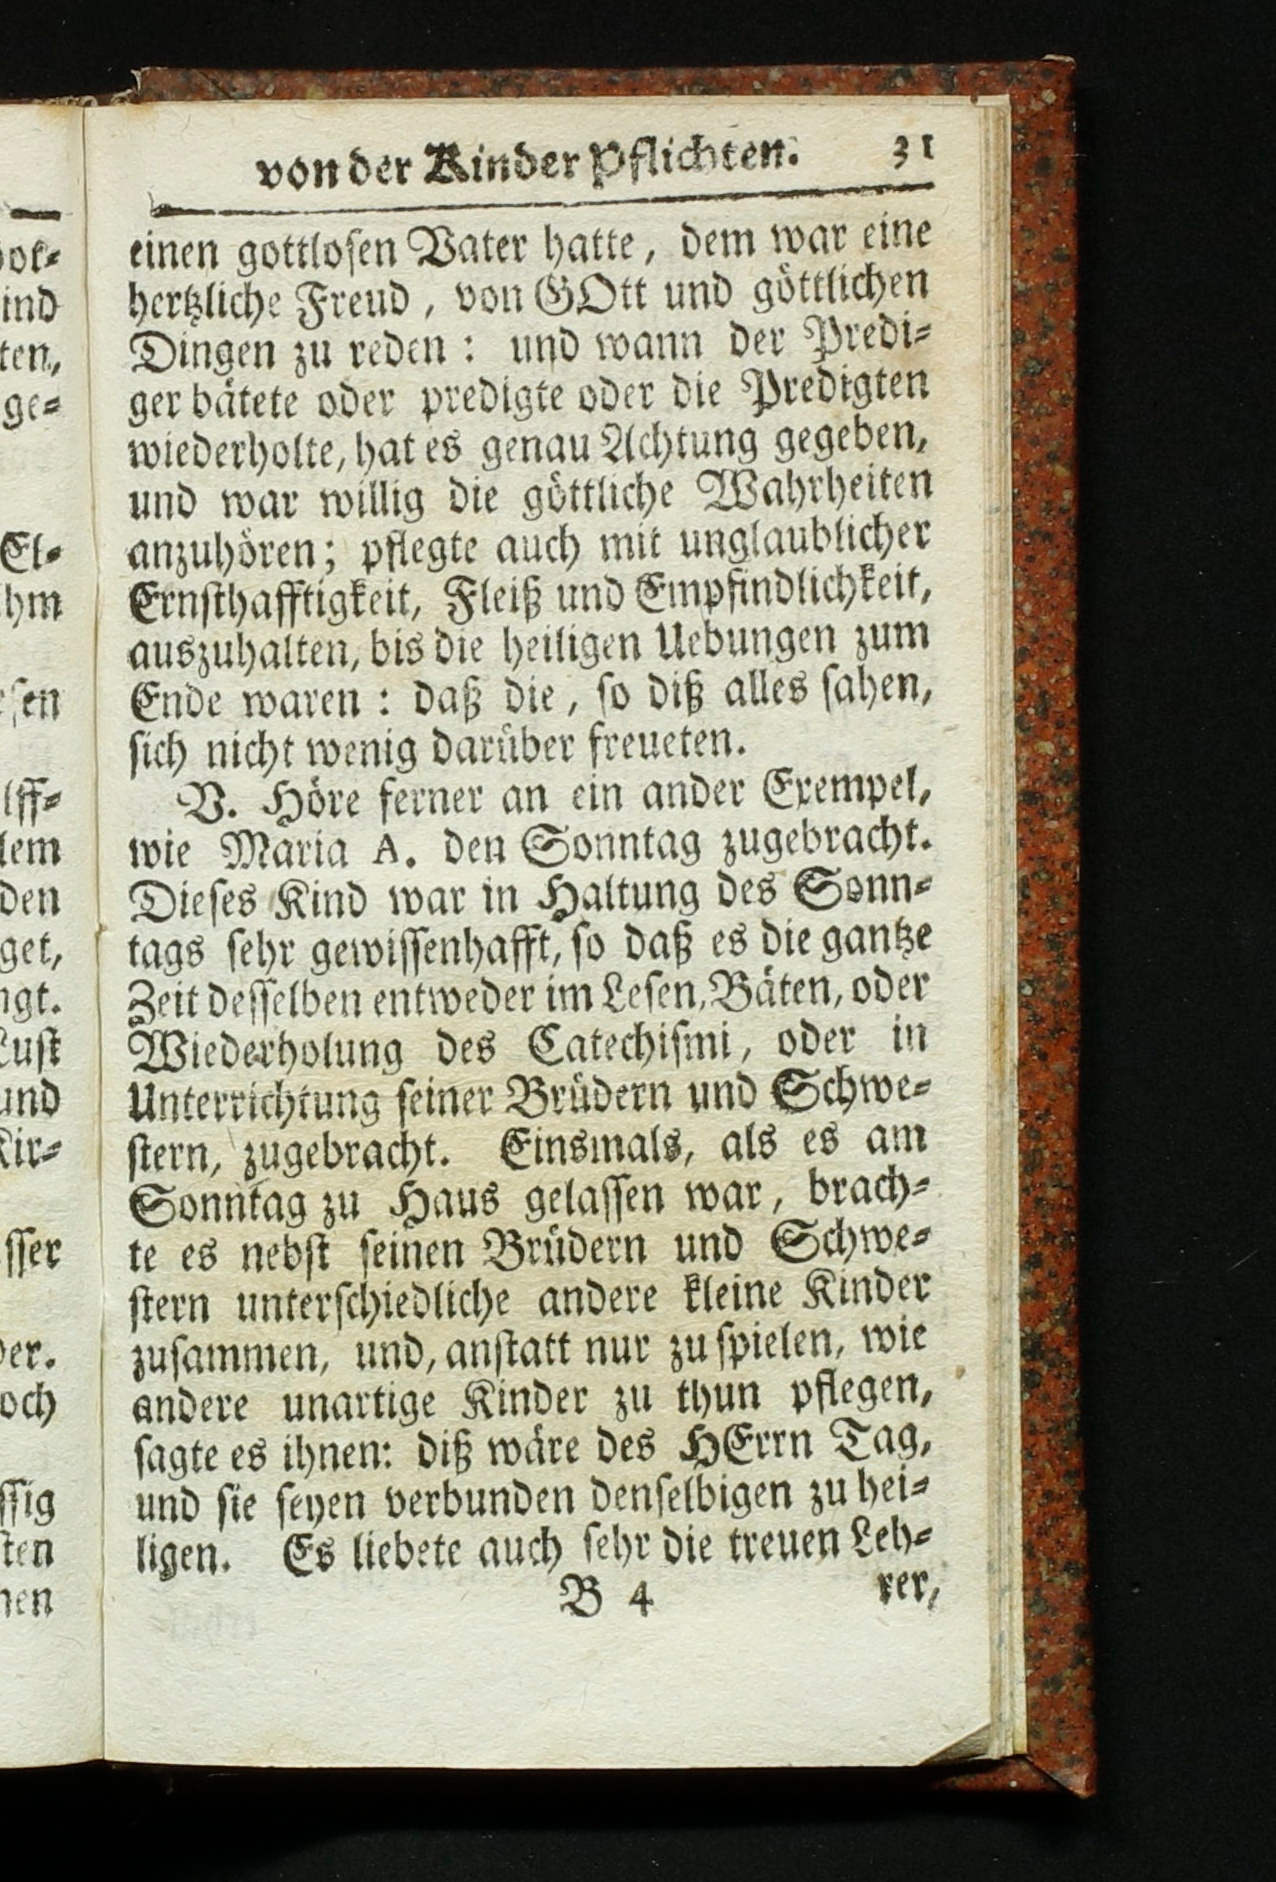 von der Kinder Pflichten. 31
einen gottlosen Vater hatte, dem war eine
hertzliche Freud, von GOtt und göttlichen
Dingen zu reden: und wann der Predi-
ger bätete oder predigte oder die Predigten
wiederholte, hat es genau Achtung gegeben,
und war willig die göttliche Wahrheiten
anzuhören; pflegte auch mit unglaublicher
Ernsthafftigkeit, Fleiß und Empfindlichkeit,
auszuhalten, bis die heiligen Uebungen zum
Ende waren: daß die, so diß alles sahen,
sich nicht wenig darüber freueten.
V. Höre ferner an ein ander Exempel,
wie Maria A. den Sonntag zugebracht.
Dieses Kind war in Haltung des Sonn-
tags sehr gewissenhafft, so daß es die gantze
Zeit desselben entweder im Lesen, Bäten, oder
Wiederholung des Catechismi, oder in
Unterrichtung seiner Brüdern und Schwe-
stern, zugebracht. Einsmals, als es am
Sonntag zu Haus gelassen war, brach-
te es nebst seinen Brüdern und Schwe-
stern unterschiedliche andere kleine Kinder
zusammen, und, anstatt nur zu spielen, wie
andere unartige Kinder zu thun pflegen,
sagte es ihnen: diß wäre des HErrn Tag,
und sie seyen verbunden denselbigen zu hei-
ligen. Es liebete auch sehr die treuen Leh-
B 4 rer,